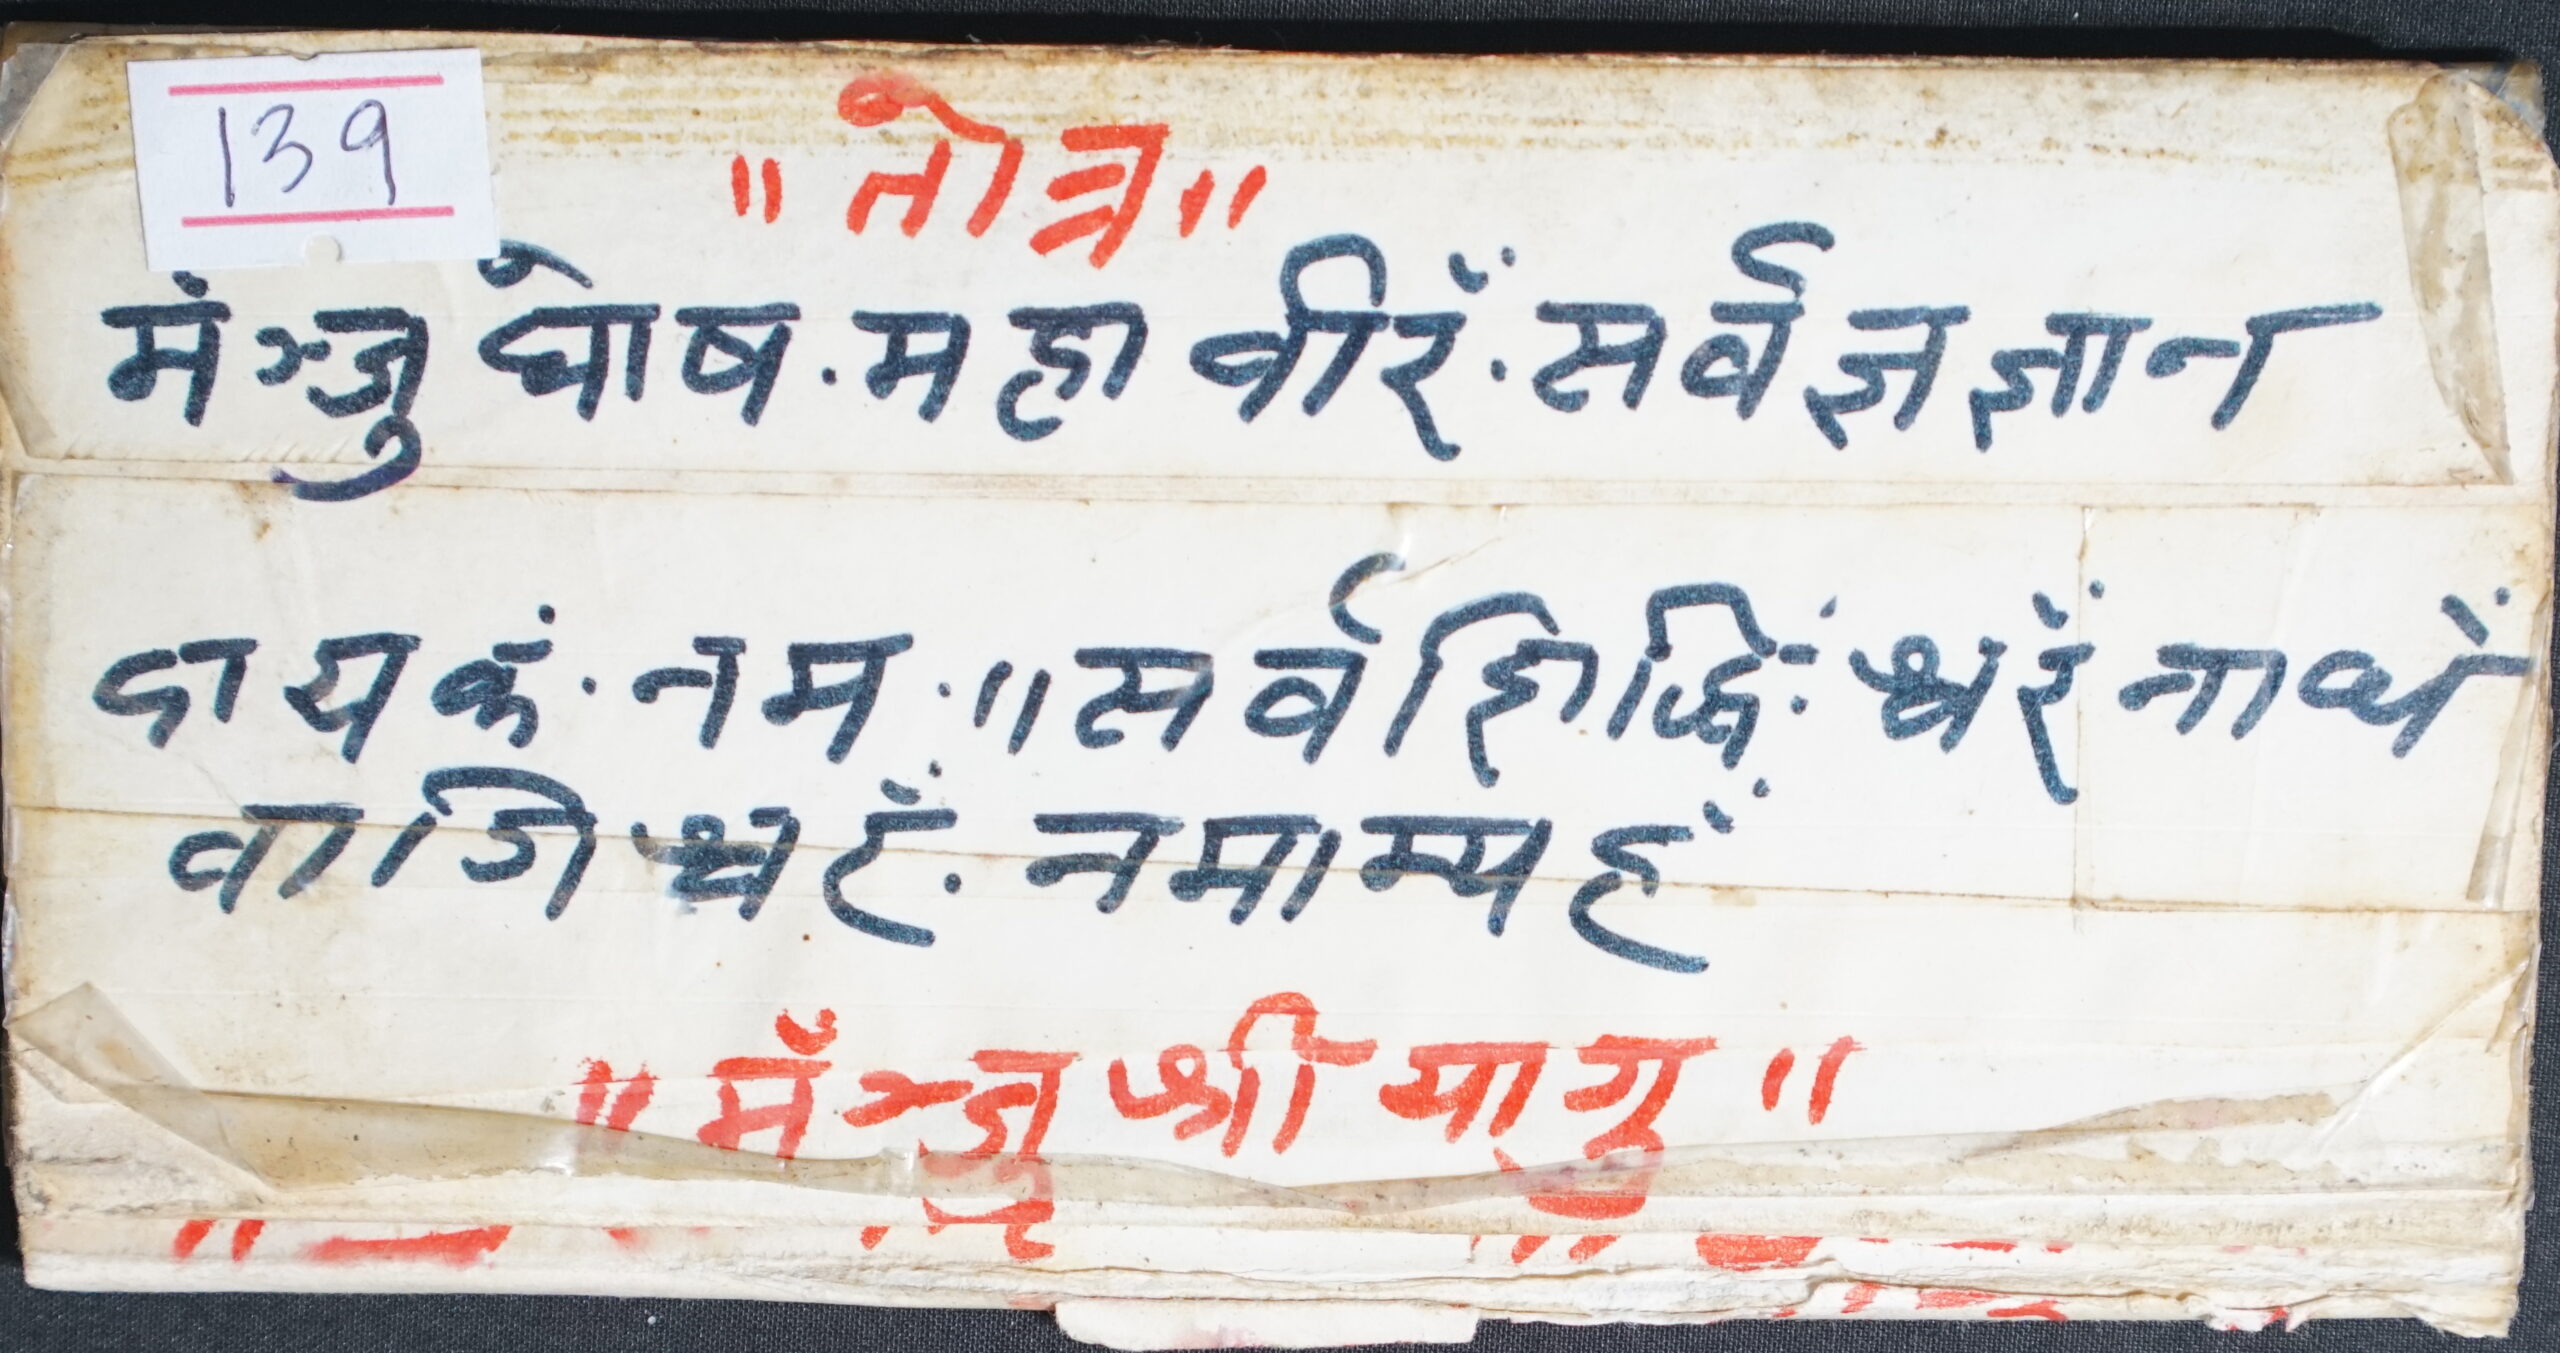 139
॥ तोत्र ॥
मंञ्जुघोष . महावीरँ . सर्वज्ञज्ञान
दायकं . नम . ॥ सर्वशिद्धिः श्वरँ नाथँ
वागिश्वरँ . नमाम्यहँ
॥ मँञ्जुश्री यागु ॥